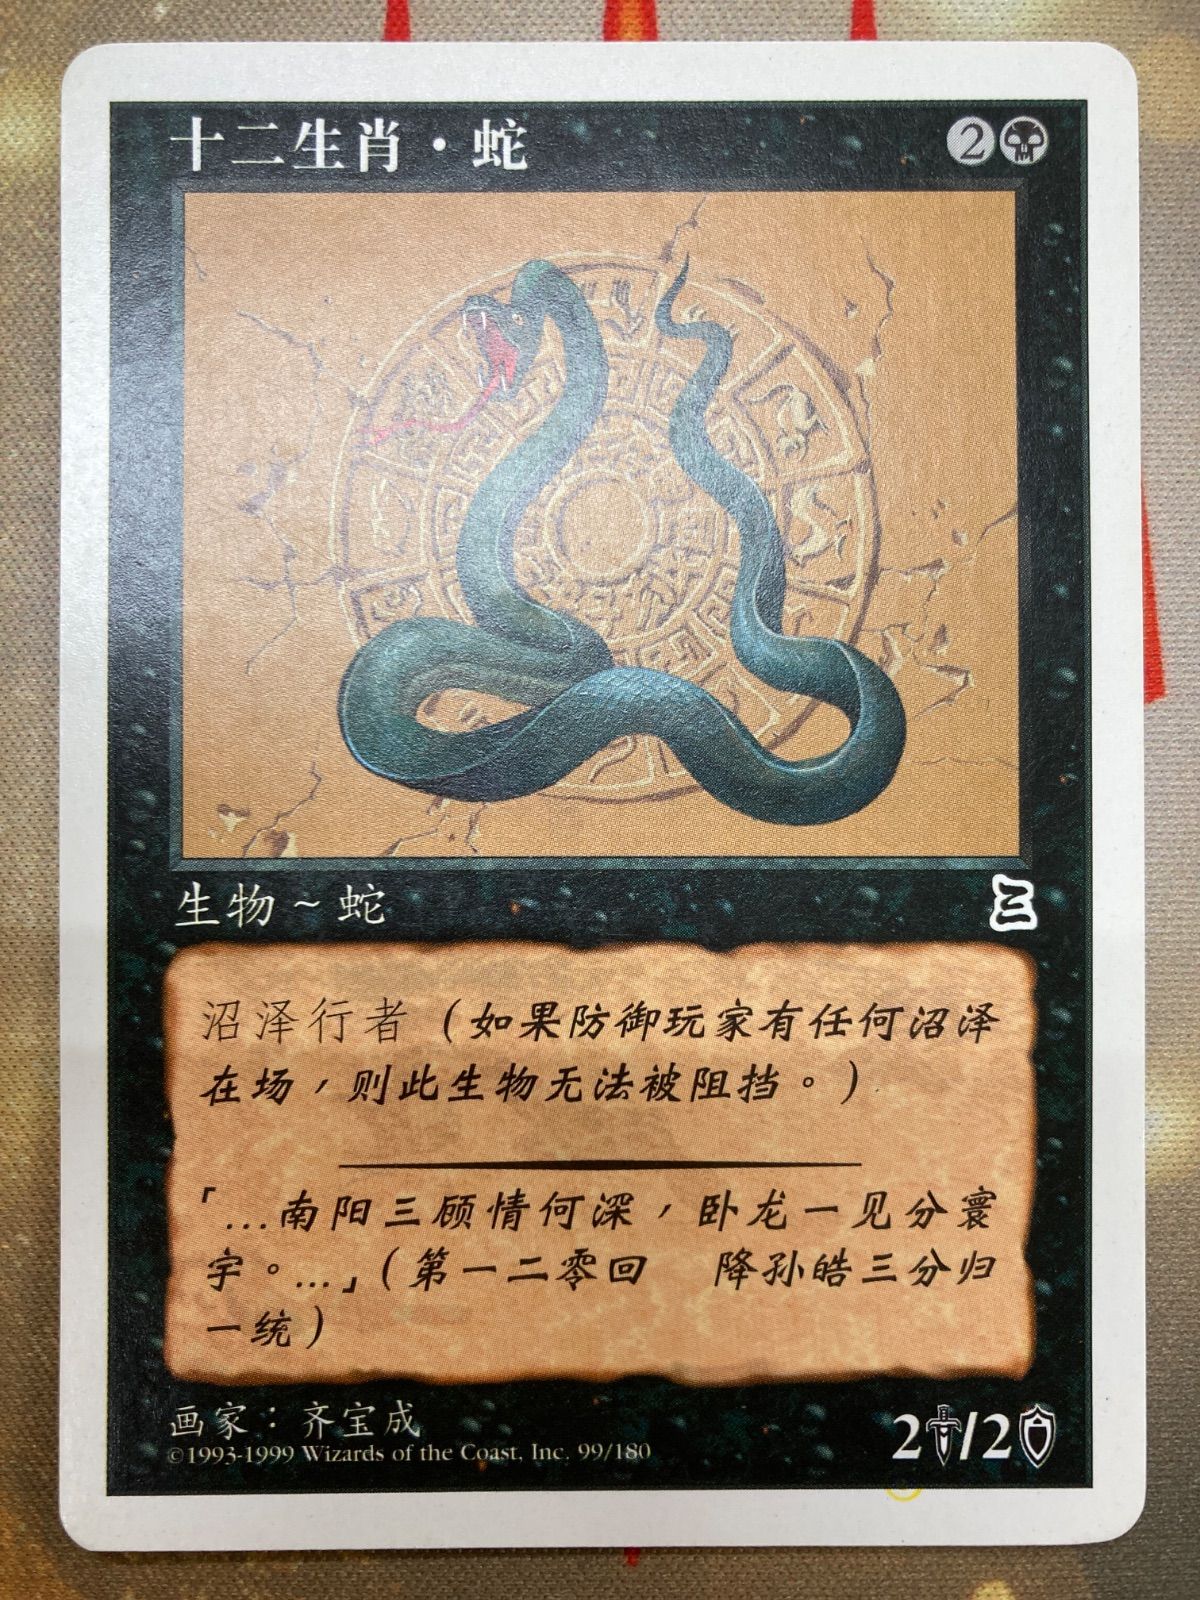 十二生肖·蛇
2
生物~蛇
三
沼泽行者（如果防御玩家有任何沼泽
在场，则此生物无法被阻挡。）
「…南阳三顾情何深，卧龙一见分寰
宇。…」（第一二零回　降孙皓三分归
一统）
画家：齐宝成
©1993-1999 Wizards of the Coast, Inc. 99/180
2/2